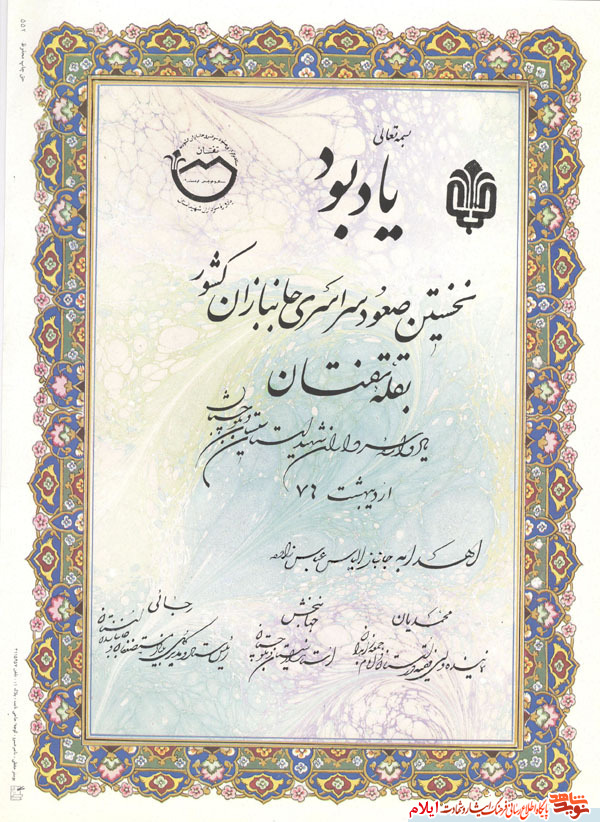 بسمه تعالی
یادبود
تفتان
نخستین صعود سراسری جانبازان کشور
بقله تفتان
یادواره سرداران شهید استان سیستان و بلوچستان
اردیبهشت ۷۶
اهداء به جانباز الیاس عباس زاده
محمدیان
جهانبخش
رجائی
نماینده ولی فقیه در استان و امام جمعه زاهدان
استاندار سیستان و بلوچستان
۵۵۲
حق چاپ محفوظ
نوید شاهد
پایگاه اطلاع رسانی فرهنگ ایثار و شهادت ایلام